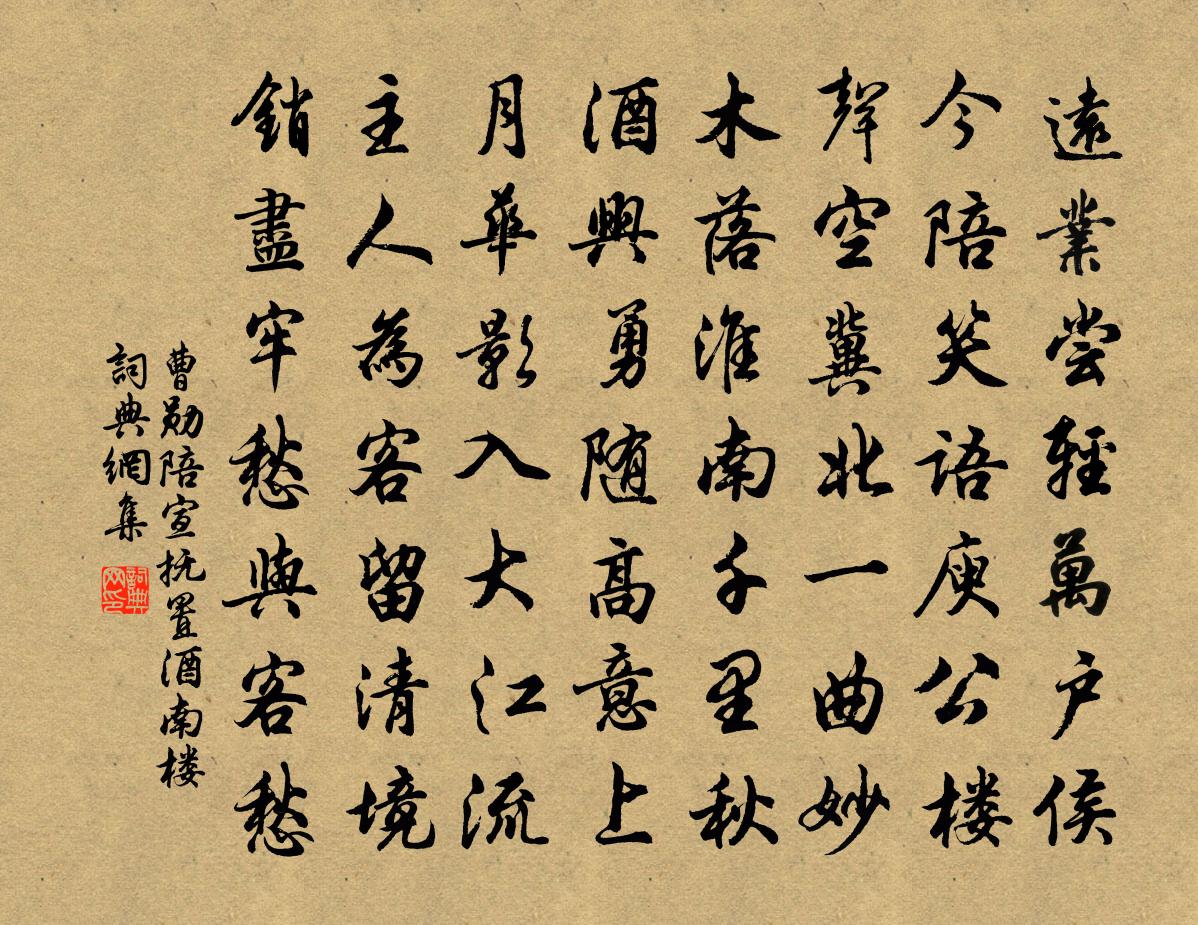 遠業尝輕萬户侯
今陪笑語庾公楼
聲空冀北一曲妙
木落淮南千里秋
酒興勇随高意上
月華影入大江流
主人為客留清境
銷盡牢愁與客愁
曹勋陪宣抚置酒南楼
詞典網集
詞典
网印